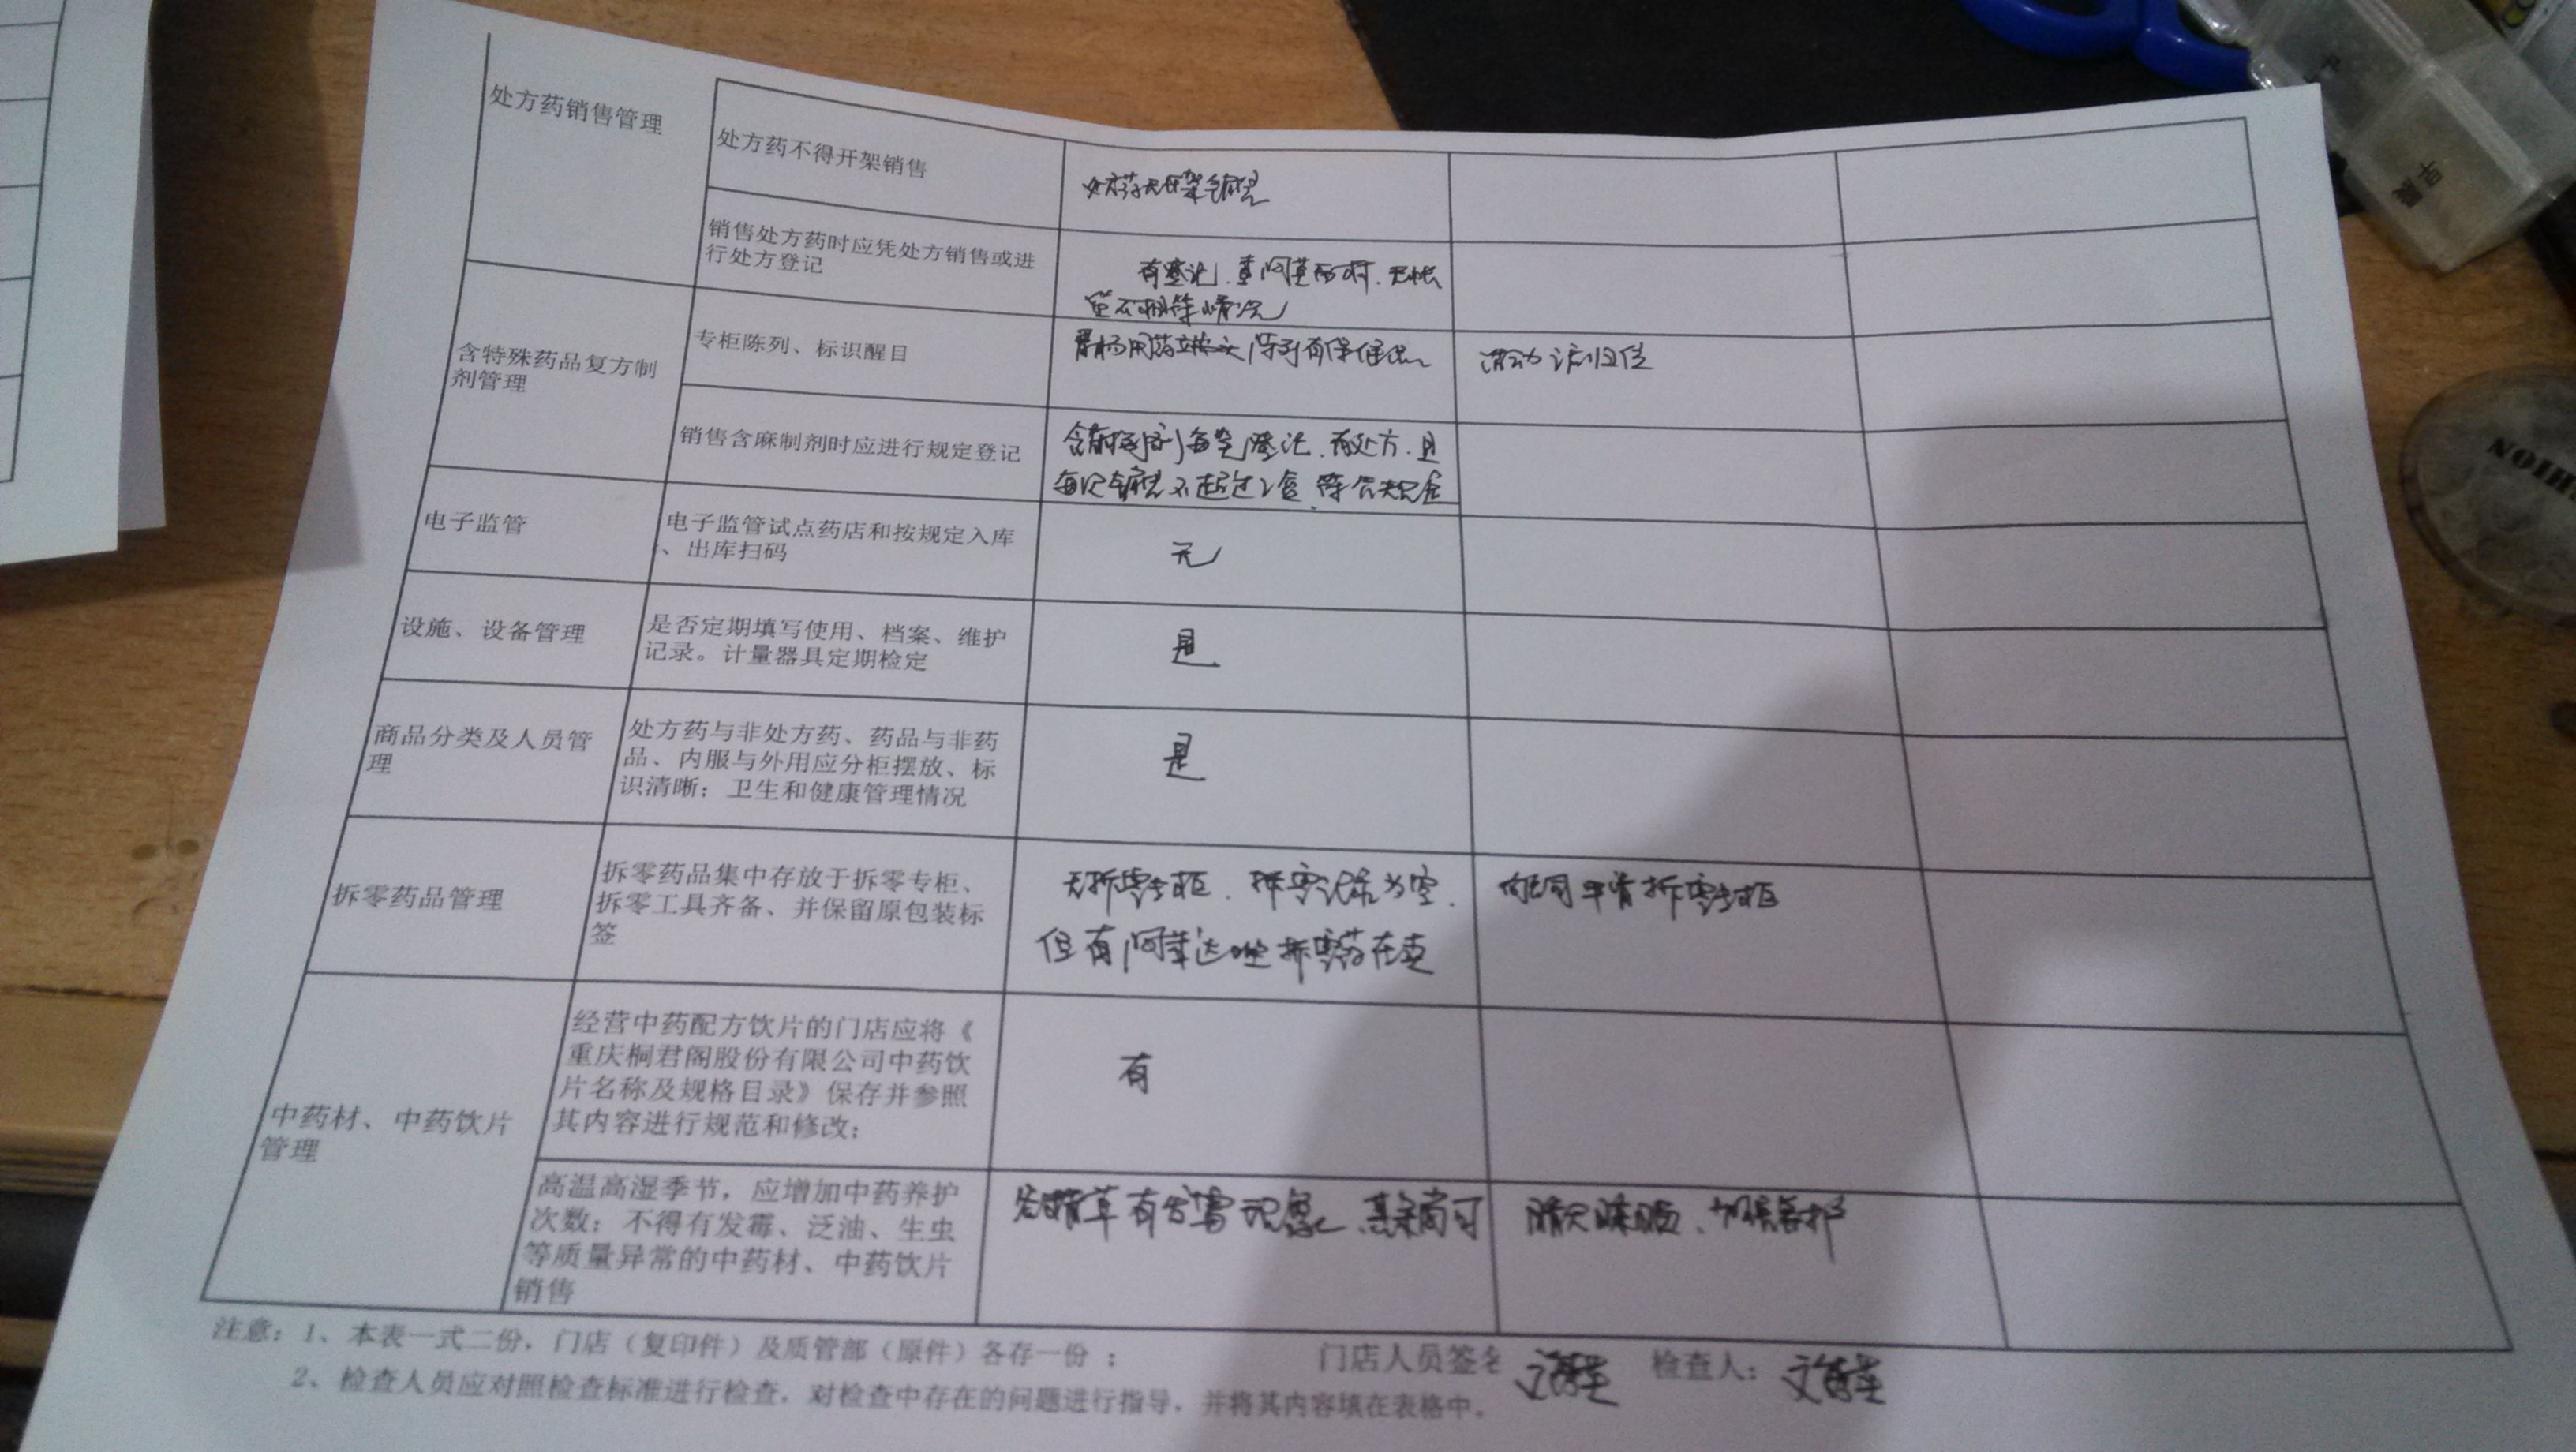 处方药销售管理
处方药不得开架销售
处方药无开架销售
销售处方药时应凭处方销售或进
行处方登记
有登记、查阿莫西林、无帐
货不相符情况
含特殊药品复方制
剂管理
专柜陈列、标识醒目
胃肠用药 陈列有保健品
活动 归位
销售含麻制剂时应进行规定登记
含麻 登记、有处方、且
每次销售不超过2盒、符合规定
电子监管
电子监管试点药店和按规定入库
、出库扫码
无
设施、设备管理
是否定期填写使用、档案、维护
记录。计量器具定期检定
是
商品分类及人员管
理
处方药与非处方药、药品与非药
品、内服与外用应分柜摆放、标
识清晰；卫生和健康管理情况
是
拆零药品管理
拆零药品集中存放于拆零专柜、
拆零工具齐备、并保留原包装标
签
无拆零专柜、拆零记录为空、
但有阿苯达唑拆零药在卖
向公司申请拆零专柜
中药材、中药饮片
管理
经营中药配方饮片的门店应将《
重庆桐君阁股份有限公司中药饮
片名称及规格目录》保存并参照
其内容进行规范和修改；
有
高温高湿季节，应增加中药养护
次数；不得有发霉、泛油、生虫
等质量异常的中药材、中药饮片
销售
谷精草有发霉现象、其余尚可
加强养护
注意：1、本表一式二份，门店（复印件）及质管部（原件）各存一份；
门店人员签名
检查人：
2、检查人员应对照检查标准进行检查，对检查中存在的问题进行指导，并将其内容填在表格中。
早
晨